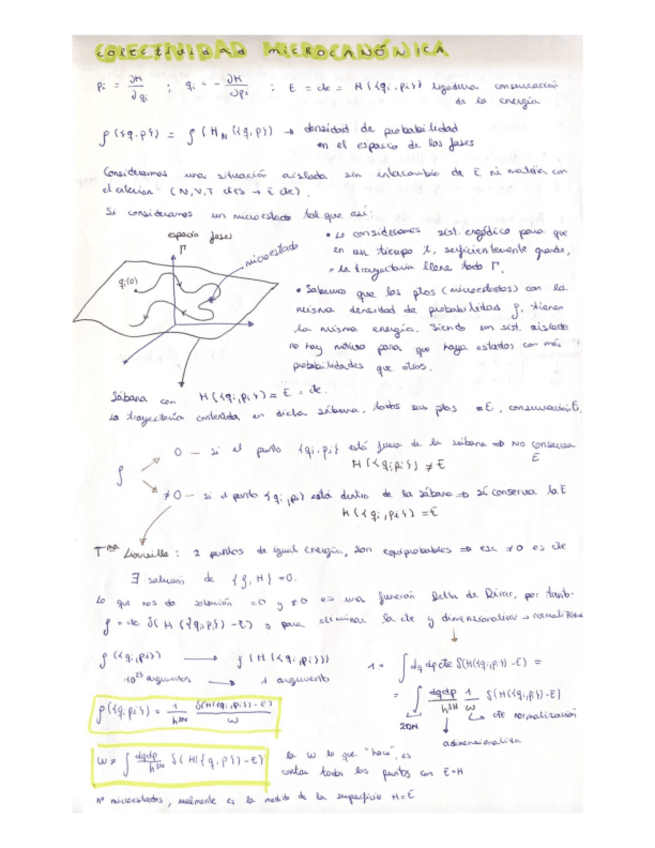 COLECTIVIDAD MICROCANÓNICA
ṗi = ∂H/∂qi ; q̇i = - ∂H/∂pi ; E = cte = H({qi,pi}) ligadura conservación
de la energía
ρ({q,p}) = ρ(H_N({q,p}) → densidad de probabilidad
en el espacio de las fases
Consideramos una situación aislada sin intercambio de E ni materia con
el exterior (N,V,T ctes → E cte).
Si consideramos un microestado tal que así:
espacio fases
Γ
microestado
qi(0)
• Lo consideramos sist. ergódico para que
en un tiempo t, suficientemente grande,
la trayectoria llene todo Γ.
• Sabemos que los ptos (microestados) con la
misma densidad de probabilidad ρ, tienen
la misma energía. Siendo un sist. aislado
no hay motivo para que haya estados con más
probabilidades que otros.
Sábana con H({qi,pi}) = E = cte.
La trayectoria contenida en dicha sábana, todos sus ptos = E, conservación E.
ρ
0 — si el punto {qi,pi} está fuera de la sábana ⇒ NO conserva E
H({qi,pi}) ≠ E
≠0 — si el punto {qi,pi} está dentro de la sábana ⇒ sí conserva la E
H({qi,pi}) = E
Tma Liouville: 2 puntos de igual energía, son equiprobables ⇒ ese ≠0 es cte
∃ solución de {ρ,H} = 0.
Lo que nos da solución =0 y ≠0 es una función Delta de Dirac, por tanto:
ρ = cte δ(H({q,p}) - E) para eliminar la cte y dimensionaliza → normalizamos
ρ({qi,pi}) → ρ(H({qi,pi}))
10²³ argumentos → 1 argumento
1 = ∫ dq dp cte δ(H({qi,pi}) - E) =
= ∫ dqdp/h³ᴺ 1/ω δ(H({qi,pi}) - E)
cte normalización
adimensionaliza
ρ({qi,pi}) = 1/h³ᴺ δ(H({qi,pi}) - E)/ω
ω = ∫ dqdp/h³ᴺ δ(H({q,p}) - E)
la ω lo que "hace", es
contar todos los puntos con E=H
nº microestados, realmente es la medida de la superficie H=E